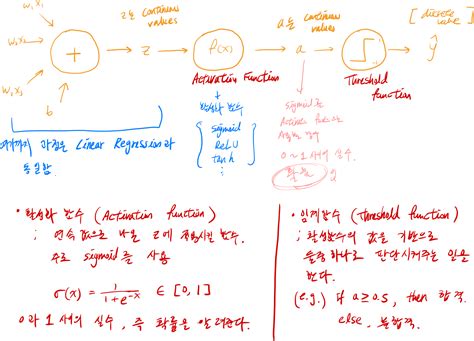 w₁x₁
w₂x₂
w₃x₃
b
+
z는 continuous
values
z
f(x)
Activation Function
활성화 함수
sigmoid
ReLU
tanh
a는 continuous
values
a
sigmoid를
0~1 사이 실수.
확률
Threshold
function
[discrete
value]
ŷ
여기까지 과정은 Linear Regression과
동일함.
• 활성화 함수 (Activation function)
; 연속 값으로 나온 z에 적용시킬 함수.
주로 sigmoid를 사용
σ(x) = 1 / 1+e^-x ∈ [0, 1]
0과 1 사이의 실수, 즉 확률을 알려준다.
• 임계함수 (Threshold function)
; 활성함수의 값을 기반으로
둘 중 하나로 판단시켜주는 일을
한다.
(e.g.) if a≥0.5, then 합격.
else, 불합격.